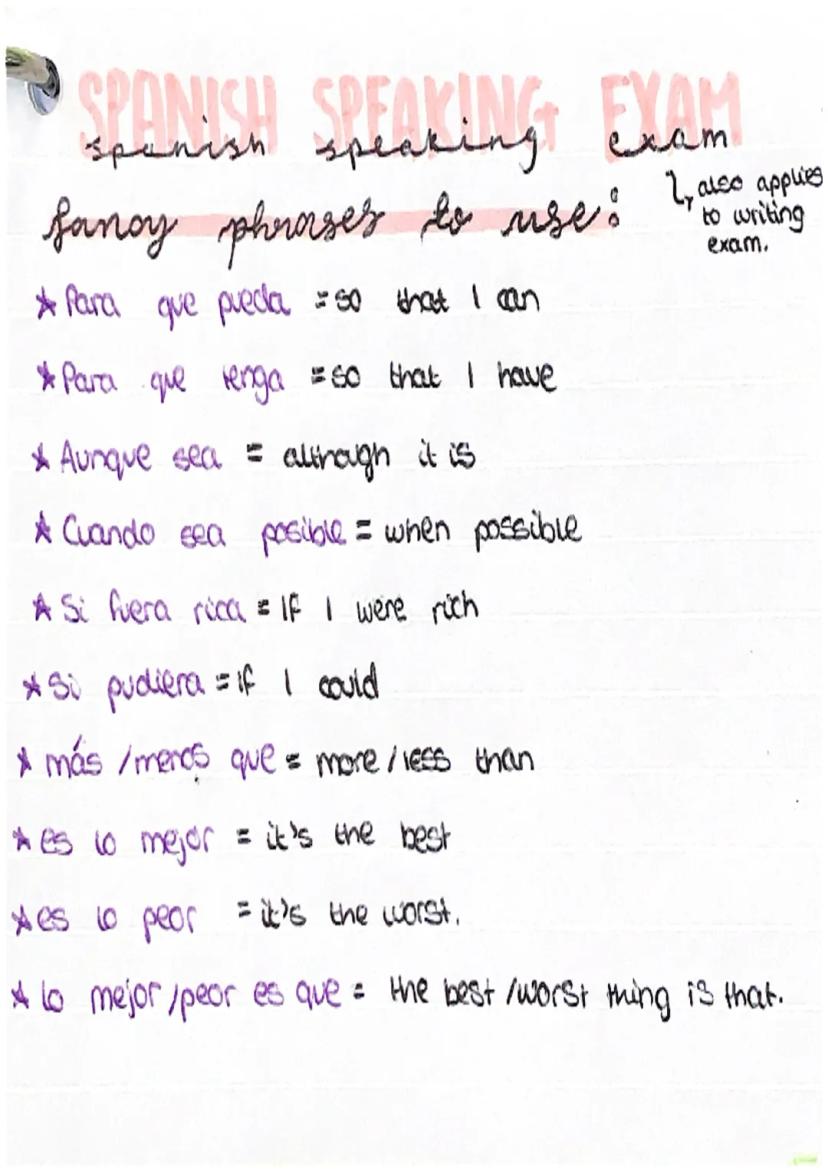 SPANISH SPEAKING EXAM
spanish speaking exam
fancy phrases to use:
↳ also applies
to writing
exam.
★ Para que pueda = so that I can
★ Para que tenga = so that I have
★ Aunque sea = although it is
★ Cuando sea posible = when possible
★ Si fuera rica = If I were rich
★ Si pudiera = if I could
★ más / menos que = more / less than
★ es lo mejor = it's the best
★ es lo peor = it's the worst.
★ lo mejor / peor es que = the best / worst thing is that.